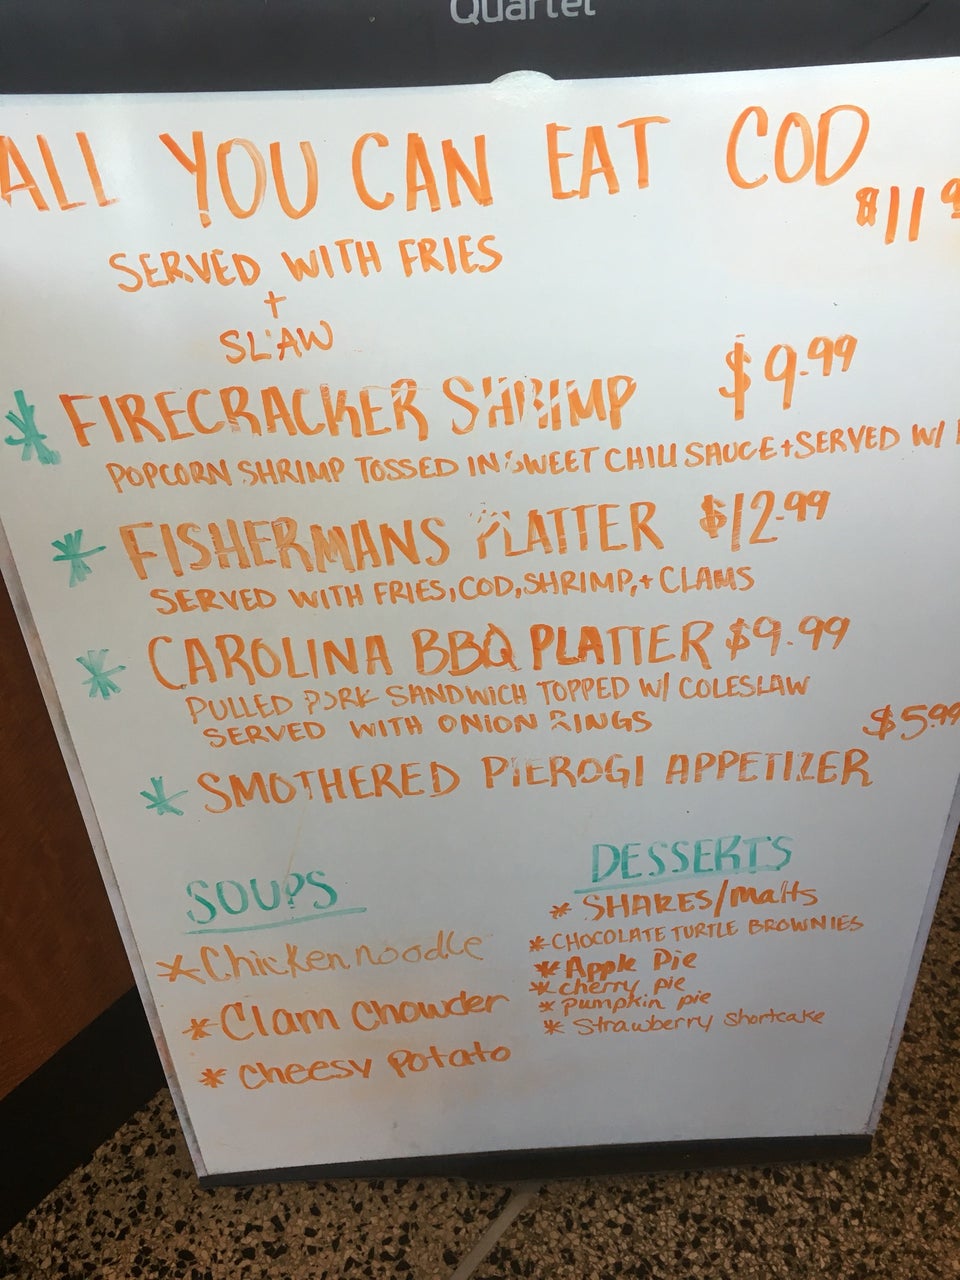 Quartet
ALL YOU CAN EAT COD
$11.9
SERVED WITH FRIES
+
SLAW
* FIRECRACKER SHRIMP $9.99
POPCORN SHRIMP TOSSED IN SWEET CHILI SAUCE + SERVED W/
* FISHERMANS PLATTER $12.99
SERVED WITH FRIES, COD, SHRIMP, + CLAMS
* CAROLINA BBQ PLATTER $9.99
PULLED PORK SANDWICH TOPPED W/ COLESLAW
SERVED WITH ONION RINGS
$5.99
* SMOTHERED PIEROGI APPETIZER
SOUPS
* Chicken noodle
* Clam Chowder
* Cheesy Potato
DESSERTS
* SHAKES/Malts
* CHOCOLATE TURTLE BROWNIES
* Apple Pie
* Cherry pie
* Pumpkin pie
* Strawberry Shortcake